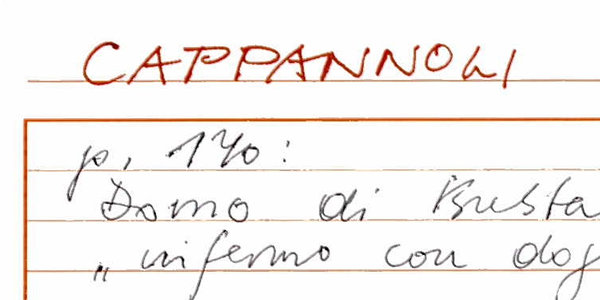 CAPPANNOLI
p. 140:
Domo di
„infermo con dog